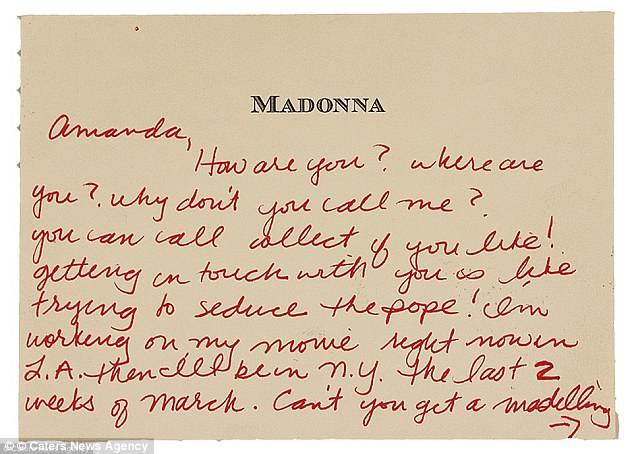 MADONNA
Amanda,
How are you? where are
you? why don't you call me?
you can call collect if you like!
getting in touch with you is like
trying to seduce the pope! I'm
working on my movie right now in
L.A. then I'll be in N.Y. the last 2
weeks of March. Can't you get a modelling
→
© Caters News Agency